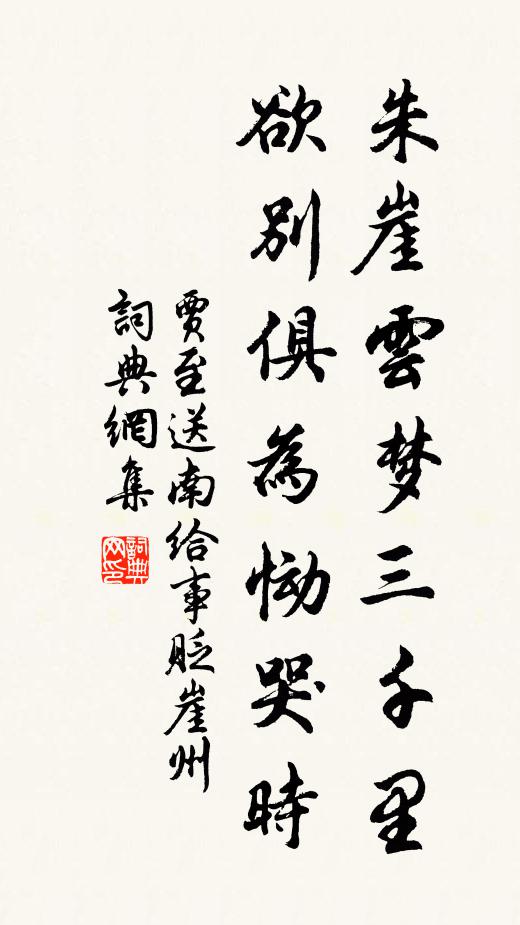 朱崖雲梦三千里
欲别俱為慟哭時
賈至送南给事貶崖州
詞典網集
詞典网印